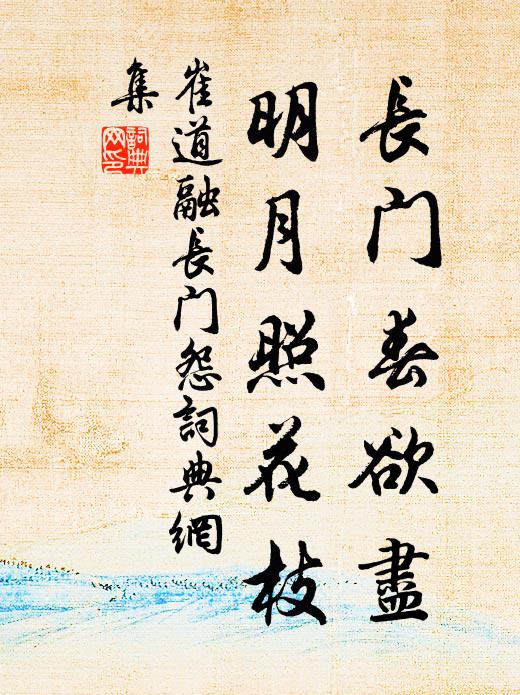 長门春欲盡
明月照花枝
崔道融長门怨詞典網
集
詞典
网印